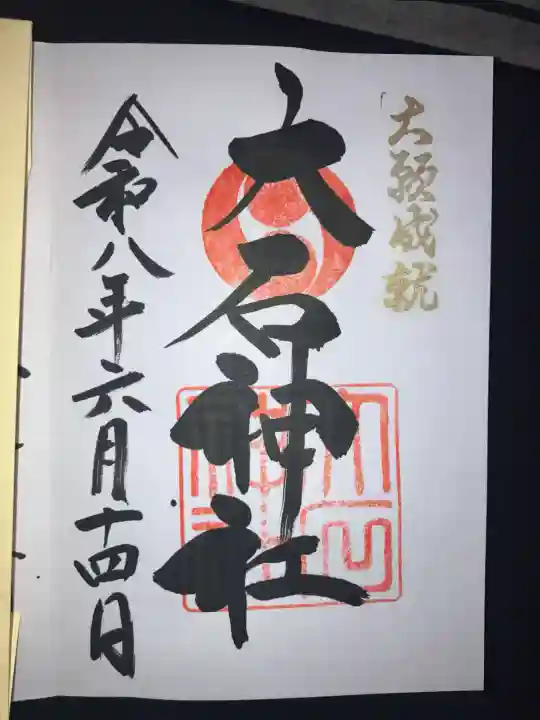 大願成就
大石神社
令和八年六月十四日